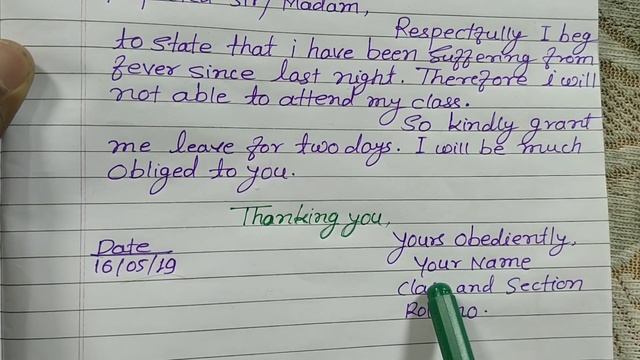 Sir/ Madam,
Respectfully I beg
to state that i have been suffering from
fever since last night. Therefore i will
not able to attend my class.
So kindly grant
me leave for two days. I will be much
obliged to you.
Thanking you,
Date
16/05/19
Yours obediently,
Your Name
and Section
no.